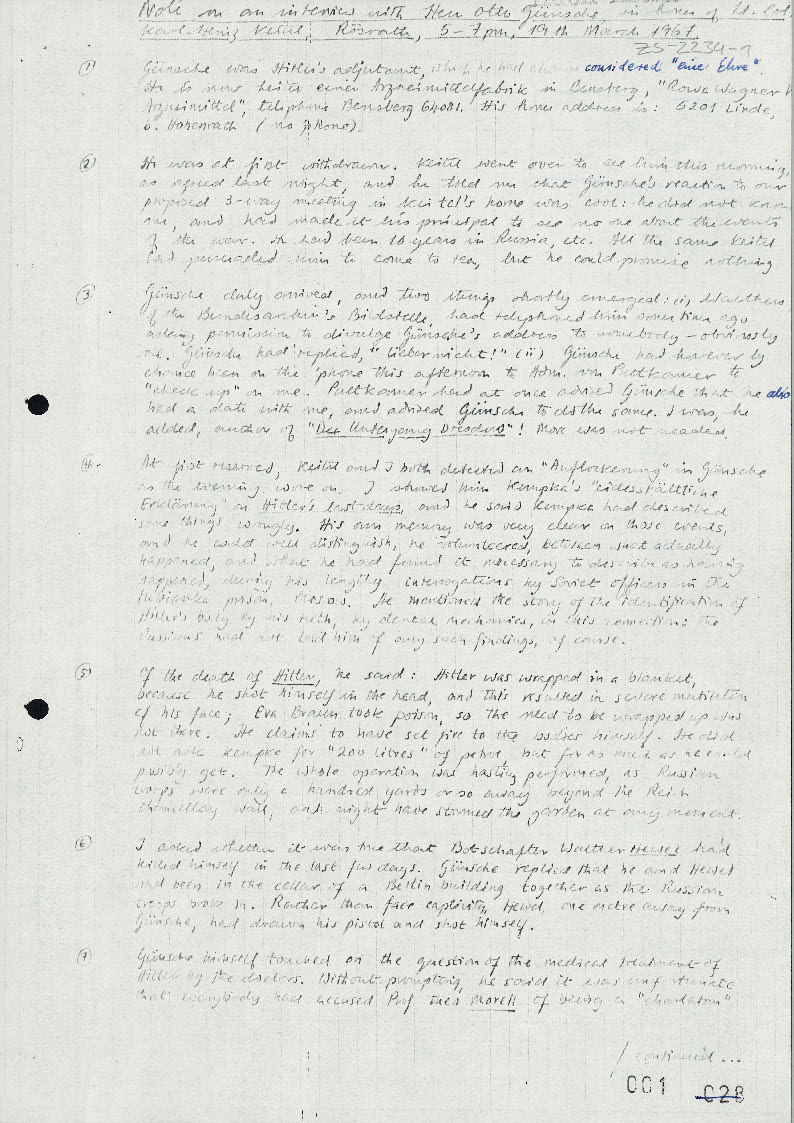 Note on an interview with Herr Otto Günsche, in home of Lt. Col.
Karl-Heinz Keitel, Rösrath, 5-7pm, 19th March 1967
ZS-2234-1
① Günsche was Hitler's adjutant, which he had always considered "eine Ehre".
He is now Leiter einer Arzneimittelfabrik in Bensberg, "Rowa Wagner
Arzneimittel", telephone Bensberg 64081. His home address is: 5201 Linde,
b. Hohenrach (no phone).
② He was at first withdrawn. Keitel went over to see him this morning,
as agreed last night, and he told me that Günsche's reaction to our
proposed 3-way meeting in Keitel's home was cool: he did not know
me, and had made it his principal to see no one about the events
of the war. He had been 10 years in Russia, etc. All the same Keitel
had persuaded him to come to tea, but he could promise nothing
③ Günsche duly arrived, and two things shortly emerged: (i) Walthers
of the Bundesarchiv's Bildstelle, had telephoned him some time ago
asking permission to divulge Günsche's address to somebody – obviously
me. Günsche had replied, "Lieber nicht!" (ii) Günsche had however by
chance been on the 'phone this afternoon to Adm. von Puttkamer to
"check up" on me. Puttkamer had at once advised Günsche that he also
had a date with me, and advised Günsche to do the same. I was, he
added, author of "Der Untergang Dresdens"! More was not needed.
4. At first reserved, Keitel and I both detected an "Auflockerung" in Günsche
as the evening wore on. I showed him Kempka's "eidesstattliche
Erklärung" on Hitler's last days, and he said Kempka had described
some things wrongly. His own memory was very clear on those events,
and he could well distinguish, he volunteered, between what actually
happened, and what he had found it necessary to describe as having
happened, during his lengthy interrogations by Soviet officers in the
Lubianka prison, Moscow. He mentioned the story of the identification of
Hitler's body by his teeth, by dental mechanics, in this connection: the
Russians had not told him of any such findings, of course.
⑤ Of the death of Hitler, he said: Hitler was wrapped in a blanket,
because he shot himself in the head, and this resulted in severe mutilation
of his face; Eva Braun took poison, so the need to be wrapped up was
not there. He claims to have set fire to the bodies himself. He did
not ask Kempka for "200 litres" of petrol, but for as much as he could
possibly get. The whole operation was hastily performed, as Russian
troops were only a hundred yards or so away beyond the Reich
chancellery wall, and might have stormed the garden at any moment.
⑥ I asked whether it was true that Botschafter Walther Hewel had
killed himself in the last few days. Günsche replied that he and Hewel
had been in the cellar of a Berlin building together as the Russian
troops broke in. Rather than face captivity, Hewel, one metre away from
Günsche, had drawn his pistol and shot himself.
⑦ Günsche himself touched on the question of the medical treatment of
Hitler by the doctors. Without prompting, he said it was unfortunate
that everybody had accused Prof Theo Morell of being a "charlatan"
/ continued ...
001 028